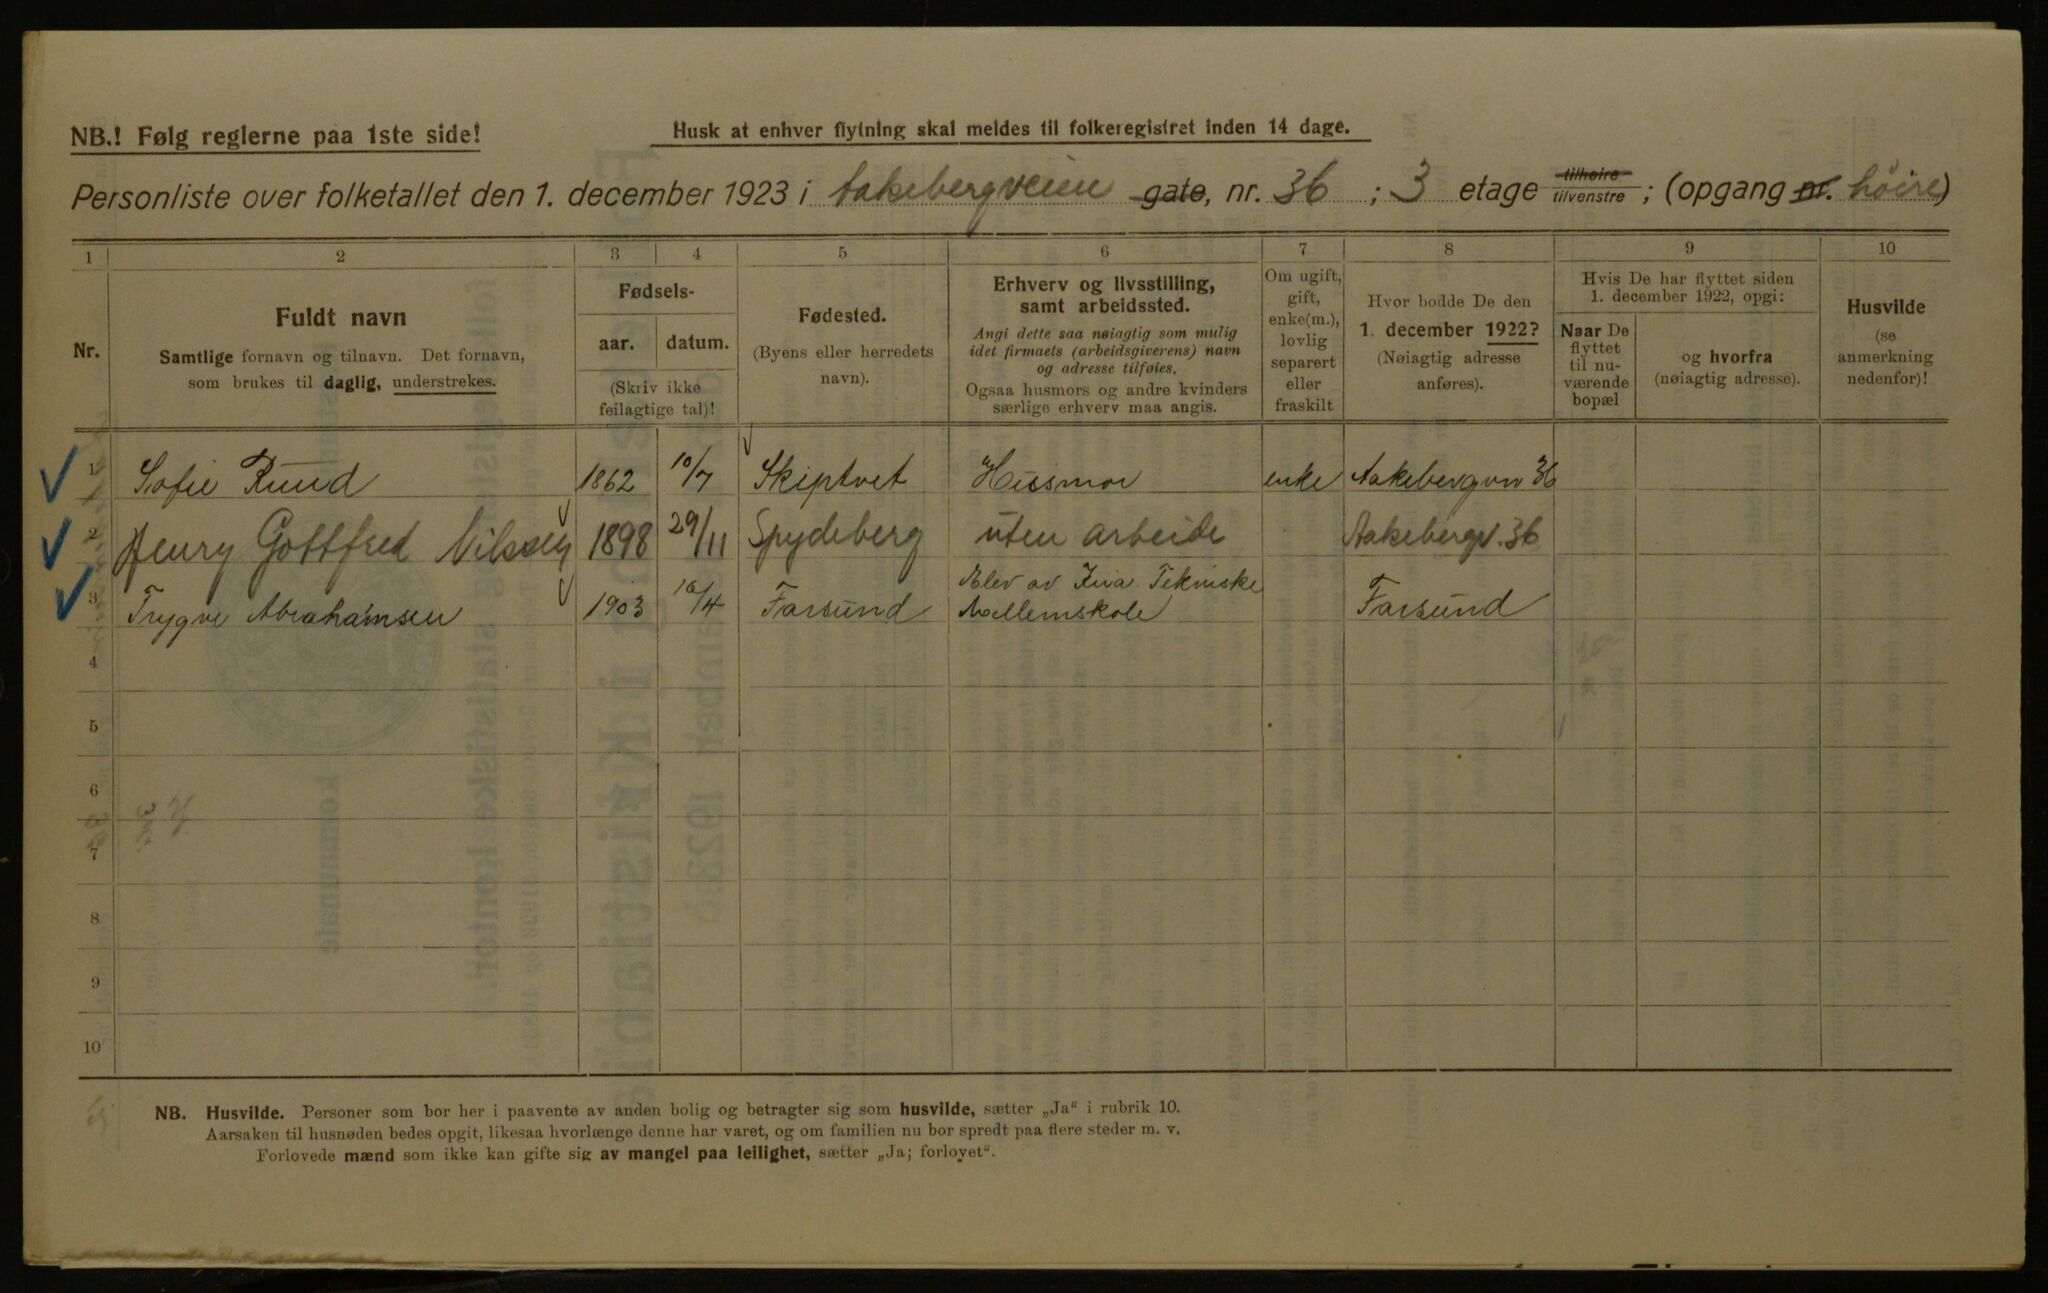 NB.! Følg reglerne paa 1ste side!
Husk at enhver flytning skal meldes til folkeregistret inden 14 dage.
Personliste over folketallet den 1. december 1923 i Aakebergveien gate, nr. 36 ; 3 etage tilhøire tilvenstre ; (opgang nr. höire)
1 2 3 4 5 6 7 8 9 10
Nr.
Fuldt navn
Samtlige fornavn og tilnavn. Det fornavn,
som brukes til daglig, understrekes.
Fødsels-
aar. datum.
(Skriv ikke
feilagtige tal)!
Fødested.
(Byens eller herredets
navn).
Erhverv og livsstilling,
samt arbeidssted.
Angi dette saa nøiagtig som mulig
idet firmaets (arbeidsgiverens) navn
og adresse tilføies.
Ogsaa husmors og andre kvinders
særlige erhverv maa angis.
Om ugift,
gift,
enke(m.),
lovlig
separert
eller
fraskilt
Hvor bodde De den
1. december 1922?
(Nøiagtig adresse
anføres).
Hvis De har flyttet siden
1. december 1922, opgi:
Naar De
flyttet
til nu-
værende
bopæl
og hvorfra
(nøiagtig adresse).
Husvilde
(se
anmerkning
nedenfor)!
1 Sofie Ruud 1862 10/7 Skiptvet Husmor enke Aakebergvn 36
2 Henry Gottfred Nilssen 1898 29/11 Spydeberg uten arbeide Aakebergv. 36
3 Trygve Abrahamsen 1903 16/4 Farsund Elev av Kra. Tekniske Mellemskole Farsund
4
5
6
7
8
9
10
NB. Husvilde. Personer som bor her i paavente av anden bolig og betragter sig som husvilde, sætter „Ja“ i rubrik 10.
Aarsaken til husnøden bedes opgit, likesaa hvorlænge denne har varet, og om familien nu bor spredt paa flere steder m. v.
Forlovede mænd som ikke kan gifte sig av mangel paa leilighet, sætter „Ja; forlovet“.